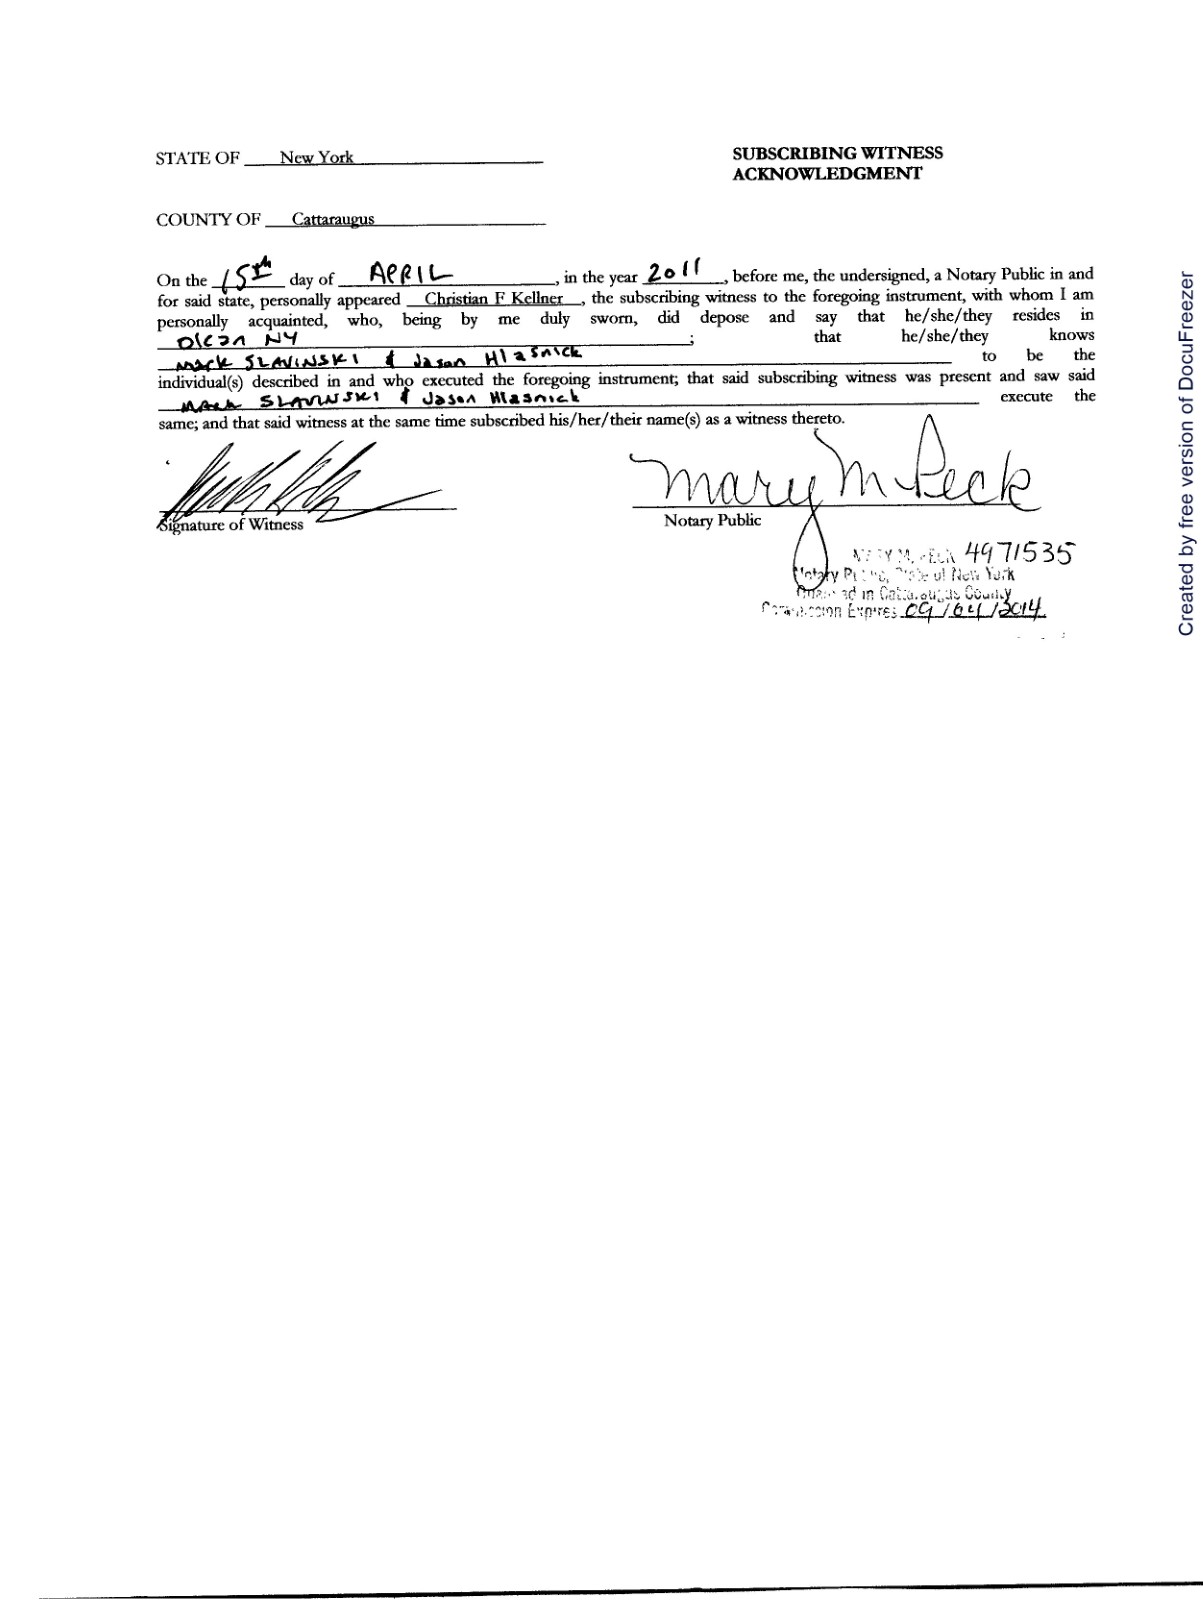 STATE OF New York
SUBSCRIBING WITNESS
ACKNOWLEDGMENT
COUNTY OF Cattaraugus
On the 15th day of APRIL, in the year 2011, before me, the undersigned, a Notary Public in and
for said state, personally appeared Christian F Kellner, the subscribing witness to the foregoing instrument, with whom I am
personally acquainted, who, being by me duly sworn, did depose and say that he/she/they resides in
Olean NY; that he/she/they knows
Mark SLAVINSKI & Jason Hlasnick to be the
individual(s) described in and who executed the foregoing instrument; that said subscribing witness was present and saw said
Mark SLAVINSKI & Jason Hlasnick execute the
same; and that said witness at the same time subscribed his/her/their name(s) as a witness thereto.
Mary M Peck
Signature of Witness
Notary Public
MARY M. PECK 4971535
Notary Public, State of New York
Qualified in Cattaraugus County
Commission Expires 09/04/2014
Created by free version of DocuFreezer